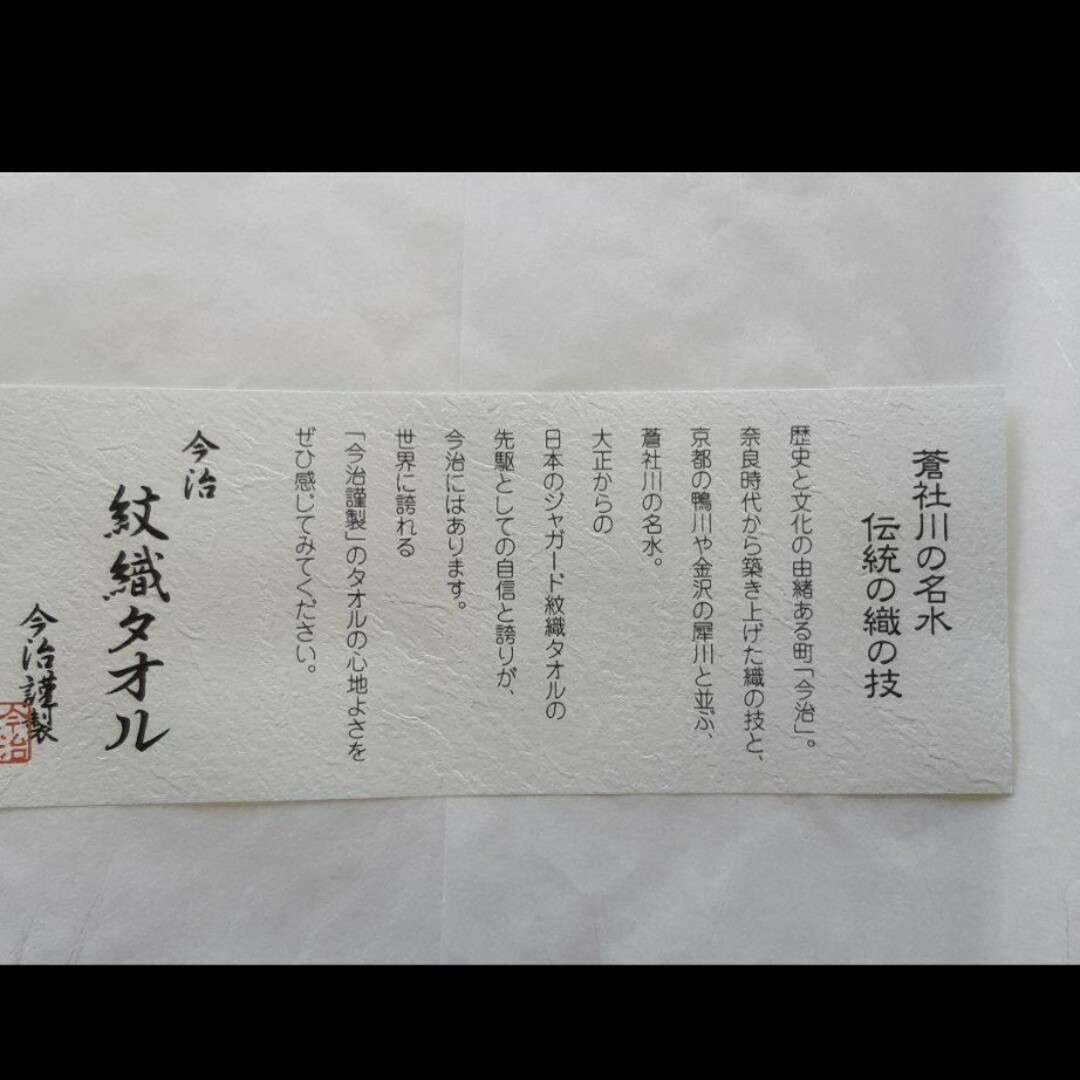 蒼社川の名水
伝統の織の技
歴史と文化の由緒ある町「今治」。
奈良時代から築き上げた織の技と、
京都の鴨川や金沢の犀川と並ぶ、
蒼社川の名水。
大正からの
日本のジャガード紋織タオルの
先駆としての自信と誇りが、
今治にはあります。
世界に誇れる
「今治謹製」のタオルの心地よさを
ぜひ感じてみてください。
今治
紋織タオル
今治謹製
今治